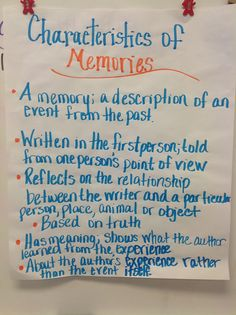 Characteristics of
Memories
• A memory; a description of an
event from the past.
• Written in the first person; told
from one person's point of view
• Reflects on the relationship
between the writer and a particular
person, place, animal or object
• Based on truth
• Has meaning; shows what the author
learned from the experience
• About the author's experience rather
than the event itself